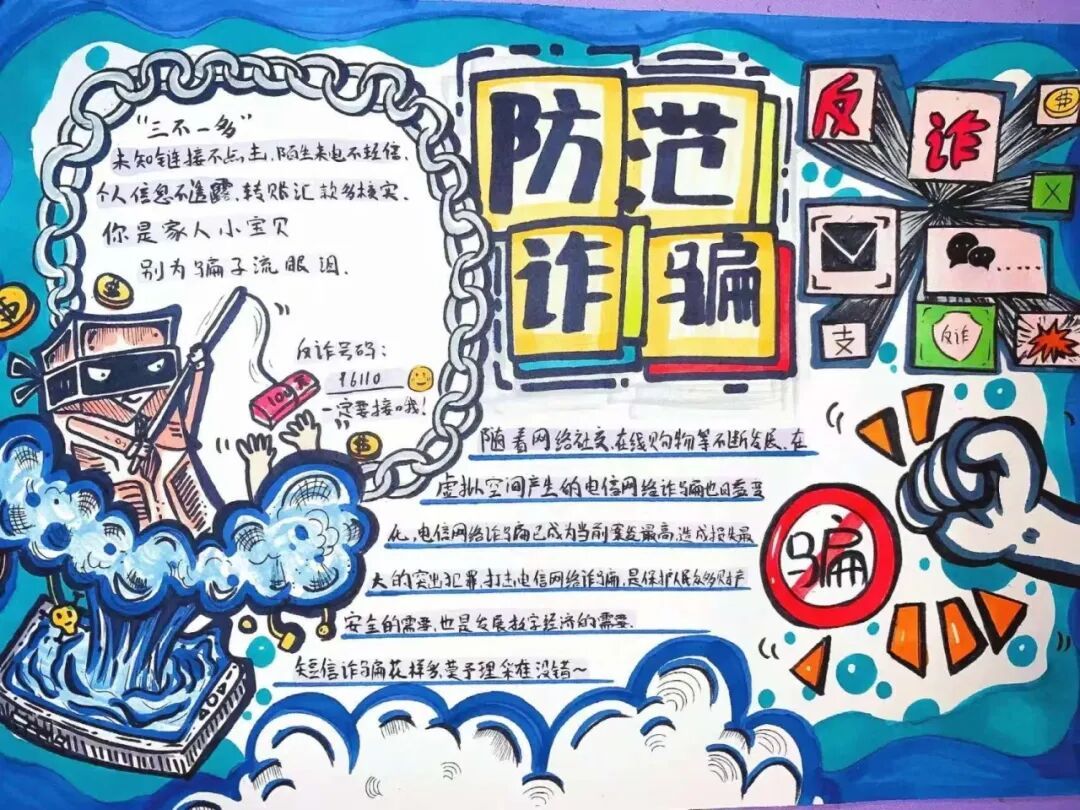 防范
诈骗
反诈
支
反诈
"三不一多"
未知链接不点击,陌生来电不轻信.
个人信息不透露,转账汇款多核实.
你是家人小宝贝
别为骗子流眼泪.
反诈号码:
96110
一定要接哦!
100
随着网络社交、在线购物等不断发展,在
虚拟空间产生的电信网络诈骗也日益变
化,电信网络诈骗已成为当前案发最高,造成损失最
大的突出犯罪,打击电信网络诈骗,是保护人民财产
安全的需要,也是发展数字经济的需要.
短信诈骗花样多,莫予理采准没错~
骗